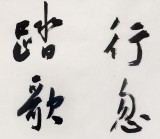 行忽
踏歌